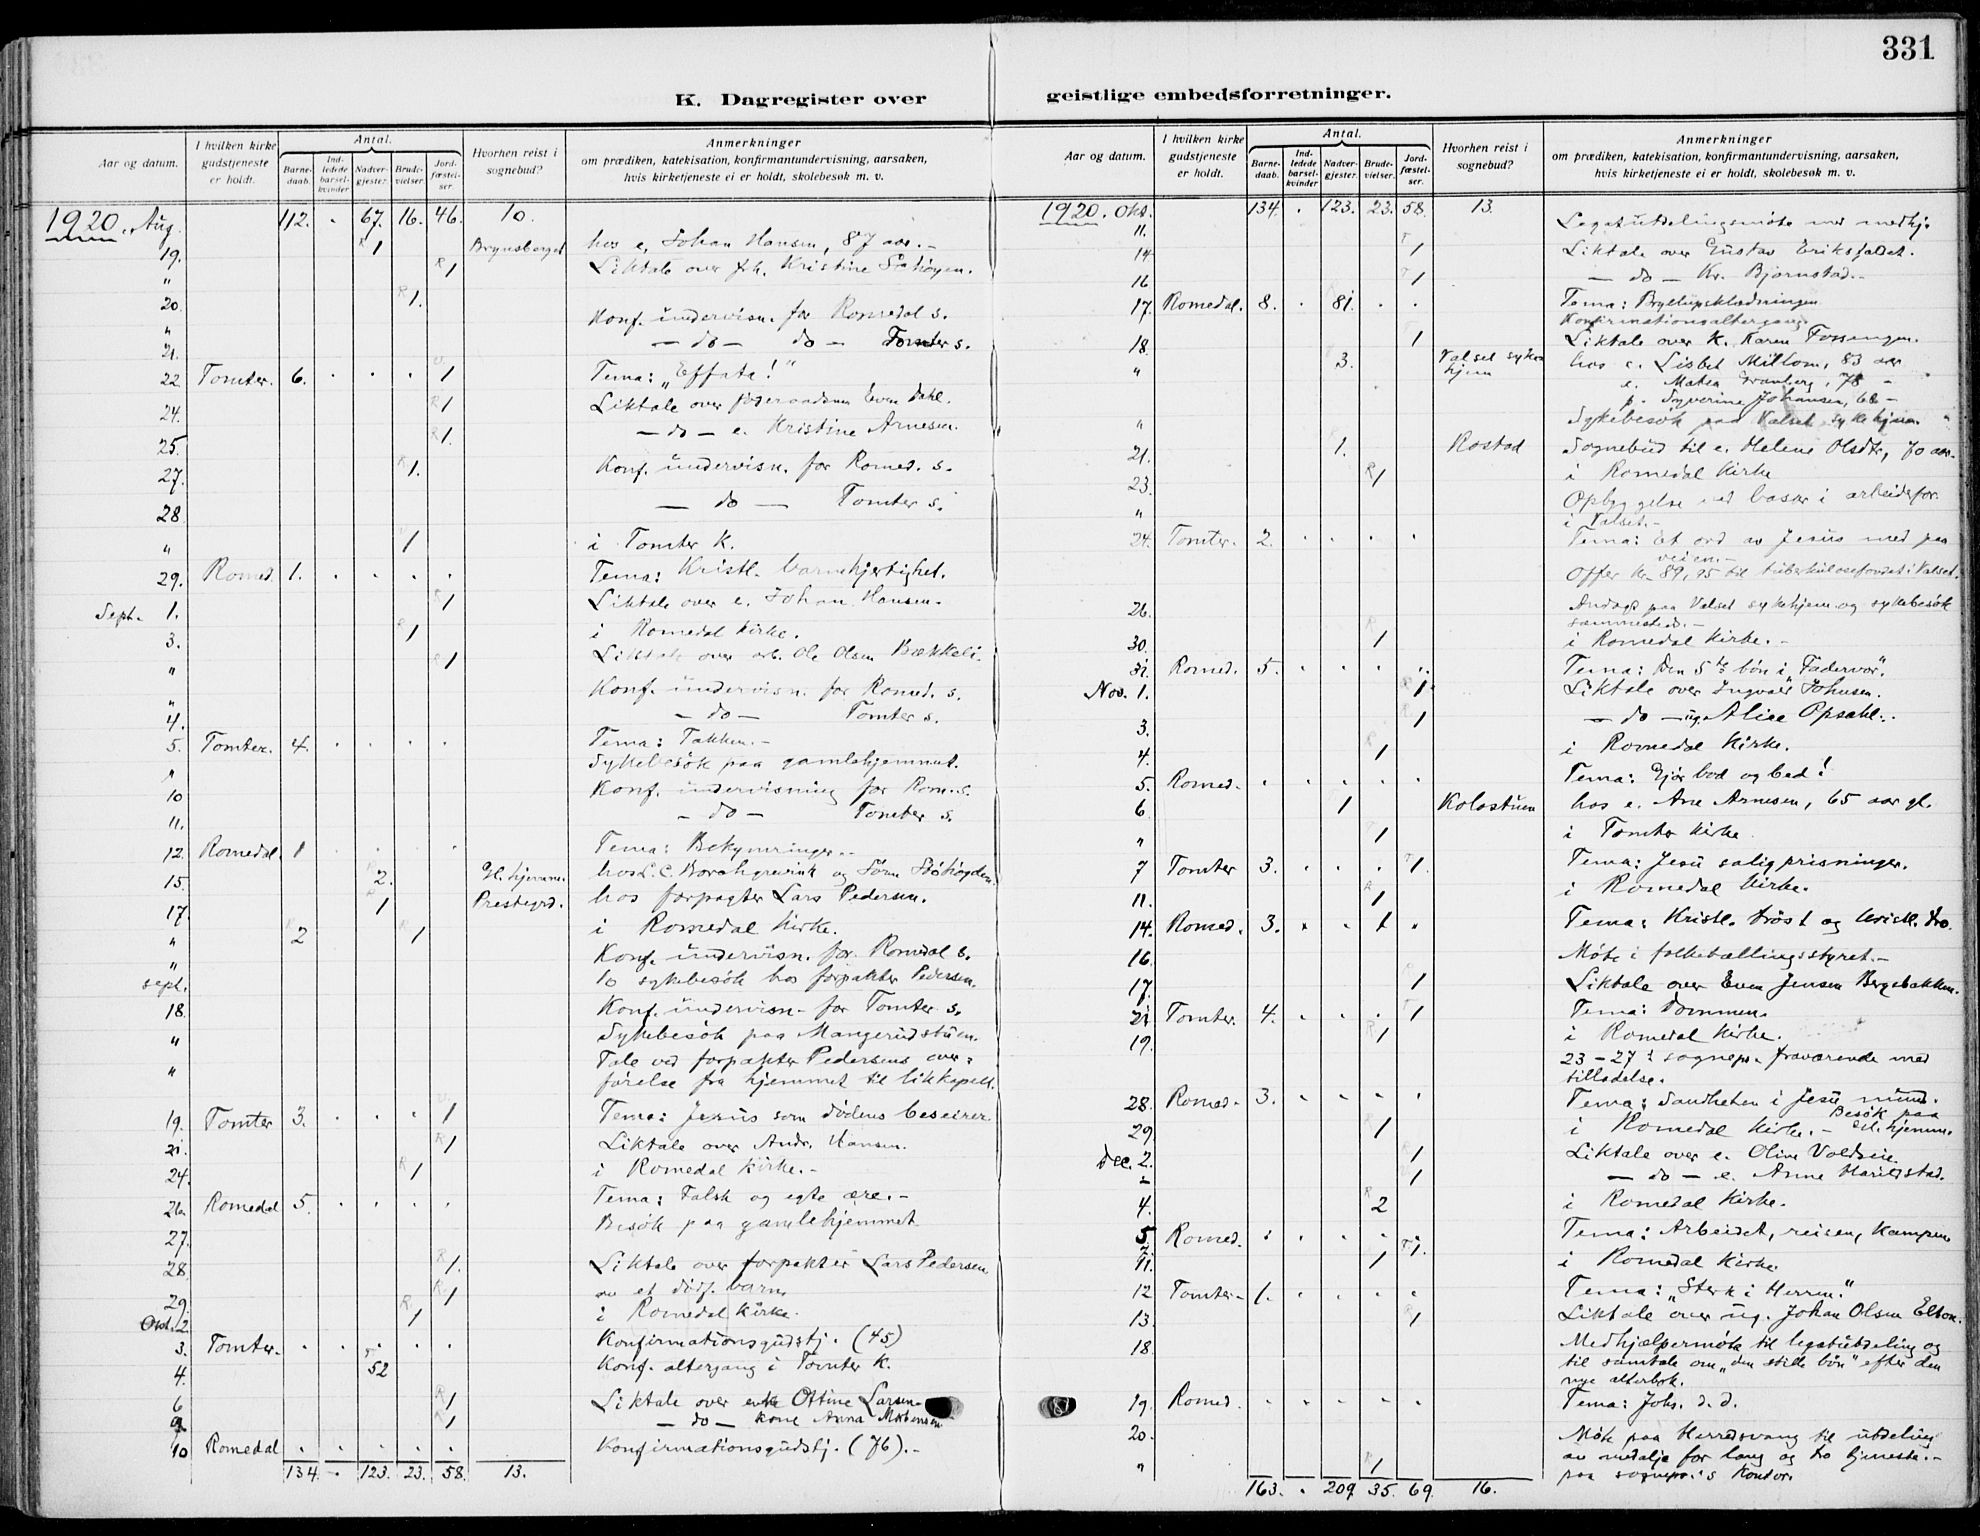 331
K. Dagregister over geistlige embedsforretninger.
Aar og datum. I hvilken kirke gudstjeneste er holdt. Antal. Barnedaab. Indledede barselkvinder Nadvergjester. Brudevielser. Jordfæstelser. Hvorhen reist i sognebud? Anmerkninger om prædiken, katekisation, konfirmantundervisning, aarsaken, hvis kirketjeneste ei er holdt, skolebesøk m. v.
1920. Aug. 112. - 67. 16. 46. 10.
19. R 1 Brynsberget hos e. Johan Hansen, 87 aar. -
" R 1 Liktale over fh. Kristine
20. R 1.
" Konf. undervisn. for Romedal s.
21. - do - do - Tomter s.
22 Tomter. 6. . . . 1 Tema: "Effata!"
24. R 1 Liktale over Even Dahl.
25. R 1. - do - e. Kristine Arnesen.
27. R 1. Konf. undervisn. for Romed. s.
28. - do - Tomter s.
" 1 i Tomter K.
29. Romed. 1. . . . . Tema: Kristl. barmhjertighet.
Sept. 1. R 1 Liktale over e. Johan Hansen.
3. R 1 i Romedal Kirke.
" R 1 Liktale over arb. Ole Olsen Bækkeli.
" Konf. undervisn. for Romed. s.
4. - do - Tomter s.
5. Tomter. 4. . . . . Tema: Takken. -
" Sykebesøk paa gamlehjemmet.
10 Konf. undervisning for Rom. s.
11. - do - Tomter s.
12. Romedal. 1 . . . . Tema: Bekymringer. -
15. R 2. Gl. hjemm. hos L. C. og
17. R 1 Prestegrd. hos forpagter Lars Pedersen.
" R 2 R 1 i Romedal Kirke.
" Konf. undervisn. for Romedal s.
sept. 10 sykebesøk hos forpakter Pedersen.
18. Konf. undervisn. for Tomter s.
" Sykebesøk paa Mangerudstuen.
" Tale ved forpakter Pedersens over-
førelse fra hjemmet til likkapell.
19. Tomter 3. . . . 1 Tema: Jesus som dødens beseirer
21. R 1 Liktale over Andr. Hansen.
24. R 1 i Romedal Kirke. -
26. Romedal 5. . . . . Tema: Falsk og egte ære. -
27. Besøk paa gamlehjemmet
28 R 1. Liktale over forpakter Lars Pedersen
29. R 1 av et dødf. barn.
Okt. 2 R 1 i Romedal Kirke.
3. Tomter. . . . . . Konfirmationsgudstj. (45)
4. T 52 Konf. altergang i Tomter K.
6 R 1 Liktale over enke Ottine Larsen.
9. R 1 - do - kone Anna Mortensen
10 Romedal . . . . . Konfirmationsgudstj. (76). -
134. - 123. 23. 58. 13.
Aar og datum. I hvilken kirke gudstjeneste er holdt. Antal. Barnedaab. Indledede barselkvinder Nadvergjester. Brudevielser. Jordfæstelser. Hvorhen reist i sognebud? Anmerkninger om prædiken, katekisation, konfirmantundervisning, aarsaken, hvis kirketjeneste ei er holdt, skolebesøk m. v.
1920. Okt. 134. . 123. 23. 58. 13.
11. Legatutdelingsmøte med medhj.
14 T 1 Liktale over Gustav Eriksfallet.
16 T 1 - do - Kr. Bjørnstad. -
17. Romedal. 8. . 81. . . Tema: Bryllupsklædningen
Konfirmationsaltergang.
18. 1 Liktale over K. Karen
" 3. Valset syke hjem hos e. Lisbet Millom, 83 aar
e. Mathea Granberg, 78 -
p. Syverine Johansen, 68 -
" Sykebesøk paa Valset sykehjem.
21. 1. Rostad Sognebud til e. Helene Olsdtr, 70 aar.
23. R 1 i Romedal Kirke
" Opbyggelse ved basar i arbeiderfor.
i Valset. -
24. Tomter. 2. . . . . Tema: Et ord av Jesus med paa
veien. -
Offer Kr. 89,95 til tuberkulosefondet i Valset.
26. Andagt paa Valset sykehjem og sykebesøk
sammesteds. -
30. R 1 i Romedal Kirke. -
31. Romed. 5. . . . . Tema: Den 5te bøn i "Fadervor".
Nov. 1. R 1. Liktale over Ingvald Johnsen.
3. R 1 - do - ug. Alice Opsahl. -
4. R 1 i Romedal Kirke.
5. Romed. . . . . . Tema: Gjør bod og bed!
6 1 Kolostuen hos e. Ane Arnesen, 65 aar gl.
" T 1 i Tomter Kirke
7 Tomter 3. . . . T 1. Tema: Jesu saligprisninger.
11. R 1 i Romedal Kirke.
14. Romed. 3. . . 1 . Tema: Kristl. trøst og kristl. tro.
16. Møte i folketællingsstyret. -
17. R 1 Liktale over Even Jensen Bergebakken.
21 Tomter. 4. . . . T 1 Tema: Dommen.
19. R 1 i Romedal Kirke.
23 - 27: sognepr. fraværende med
tilladelse.
28. Romed. 3. . . . . Tema: Sandheten i Jesu mund.
29. R 1 i Romedal Kirke. - Besøk paa Gl. hjemm.
Dec. 2. R 1 Liktale over e. Oline
- 1 - do - e. Anne
4. R 2 i Romedal Kirke.
5. Romed. . . . . T 1. Tema: Arbeidet, reisen, kampen
11. 1 i Romedal Kirke
12 Tomter - 1. . . . . Tema: "Sterk i Herren."
13. R 1 Liktale over ug. Johan Olsen Elton.
18. Medhjælpermøte til legatutdeling og
til samtale om "den stille bøn" efter den
nye alterbok.
19. Romed. . . . . . Tema: Johs. d. d.
20. Møte paa Herredsvang til utdeling
" R 1 av medalje for lang og tro tjeneste. -
paa sognepr.'s Kontor.
163. . 209. 35. 69. 16.